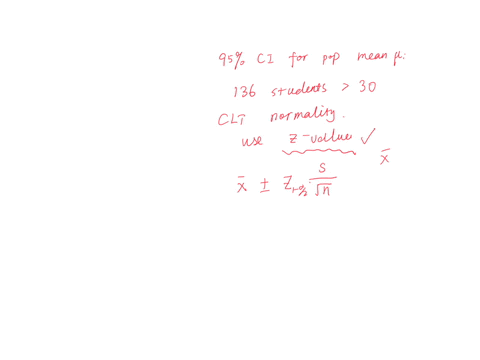 95% CI for pop mean μ:
136 students > 30
CLT normality.
use z-value ✓
x̄
x̄ ± Z₁₋α/₂ · s/√n